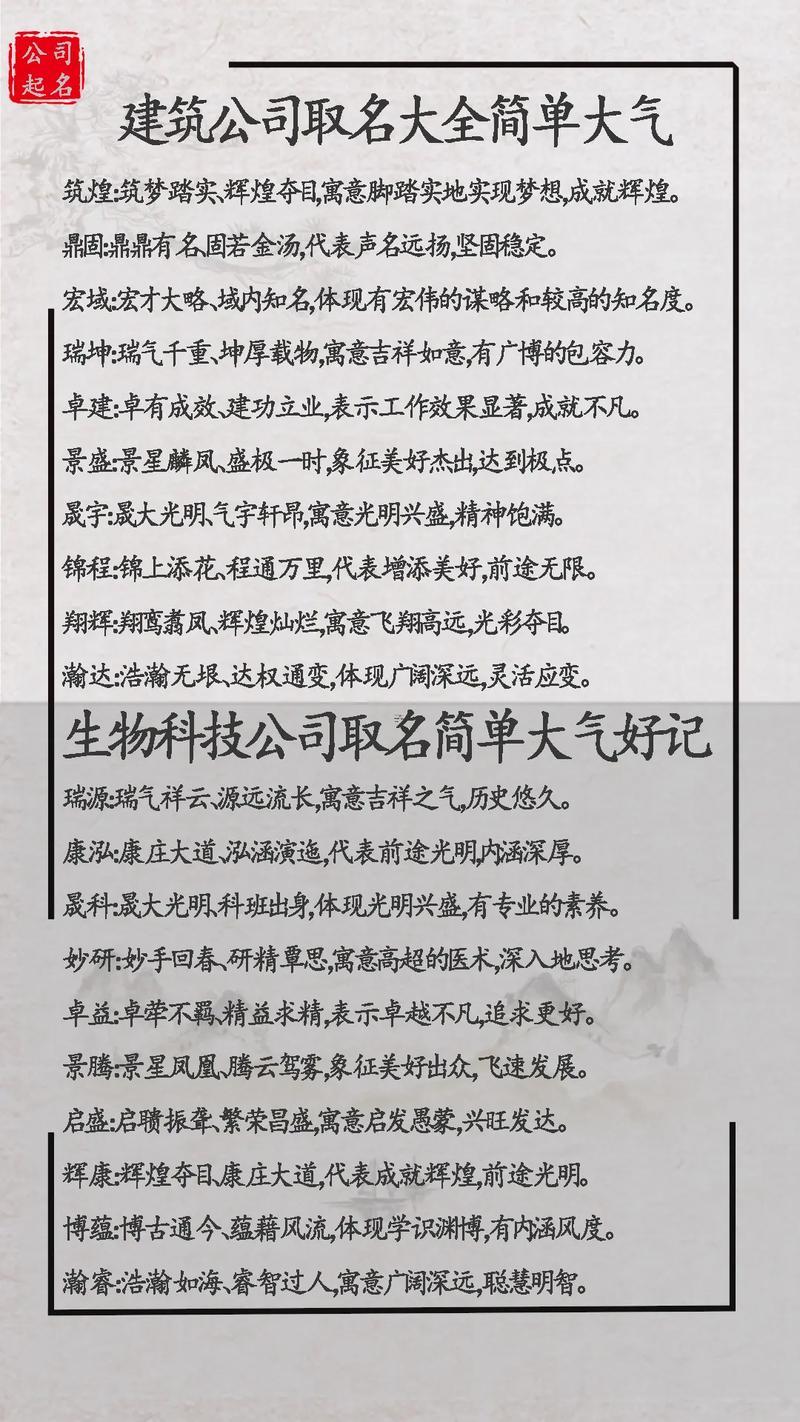 公司
起名
建筑公司取名大全简单大气
筑煌:筑梦踏实、辉煌夺目,寓意脚踏实地实现梦想,成就辉煌。
鼎固:鼎鼎有名、固若金汤,代表声名远扬,坚固稳定。
宏域:宏才大略、域内知名,体现有宏伟的谋略和较高的知名度。
瑞坤:瑞气千重、坤厚载物,寓意吉祥如意,有广博的包容力。
卓建:卓有成效、建功立业,表示工作效果显著,成就不凡。
景盛:景星麟凤、盛极一时,象征美好杰出,达到极点。
晟宇:晟大光明、气宇轩昂,寓意光明兴盛,精神饱满。
锦程:锦上添花、程通万里,代表增添美好,前途无限。
翔辉:翔鸾翥凤、辉煌灿烂,寓意飞翔高远,光彩夺目。
瀚达:浩瀚无垠、达权通变,体现广阔深远,灵活应变。
生物科技公司取名简单大气好记
瑞源:瑞气祥云、源远流长,寓意吉祥之气,历史悠久。
康泓:康庄大道、泓涵演迤,代表前途光明,内涵深厚。
晟科:晟大光明、科班出身,体现光明兴盛,有专业的素养。
妙研:妙手回春、研精覃思,寓意高超的医术,深入地思考。
卓益:卓荦不羁、精益求精,表示卓越不凡,追求更好。
景腾:景星凤凰、腾云驾雾,象征美好出众,飞速发展。
启盛:启聩振聋、繁荣昌盛,寓意启发愚蒙,兴旺发达。
辉康:辉煌夺目、康庄大道,代表成就辉煌,前途光明。
博蕴:博古通今、蕴藉风流,体现学识渊博,有内涵风度。
瀚睿:浩瀚如海、睿智过人,寓意广阔深远,聪慧明智。